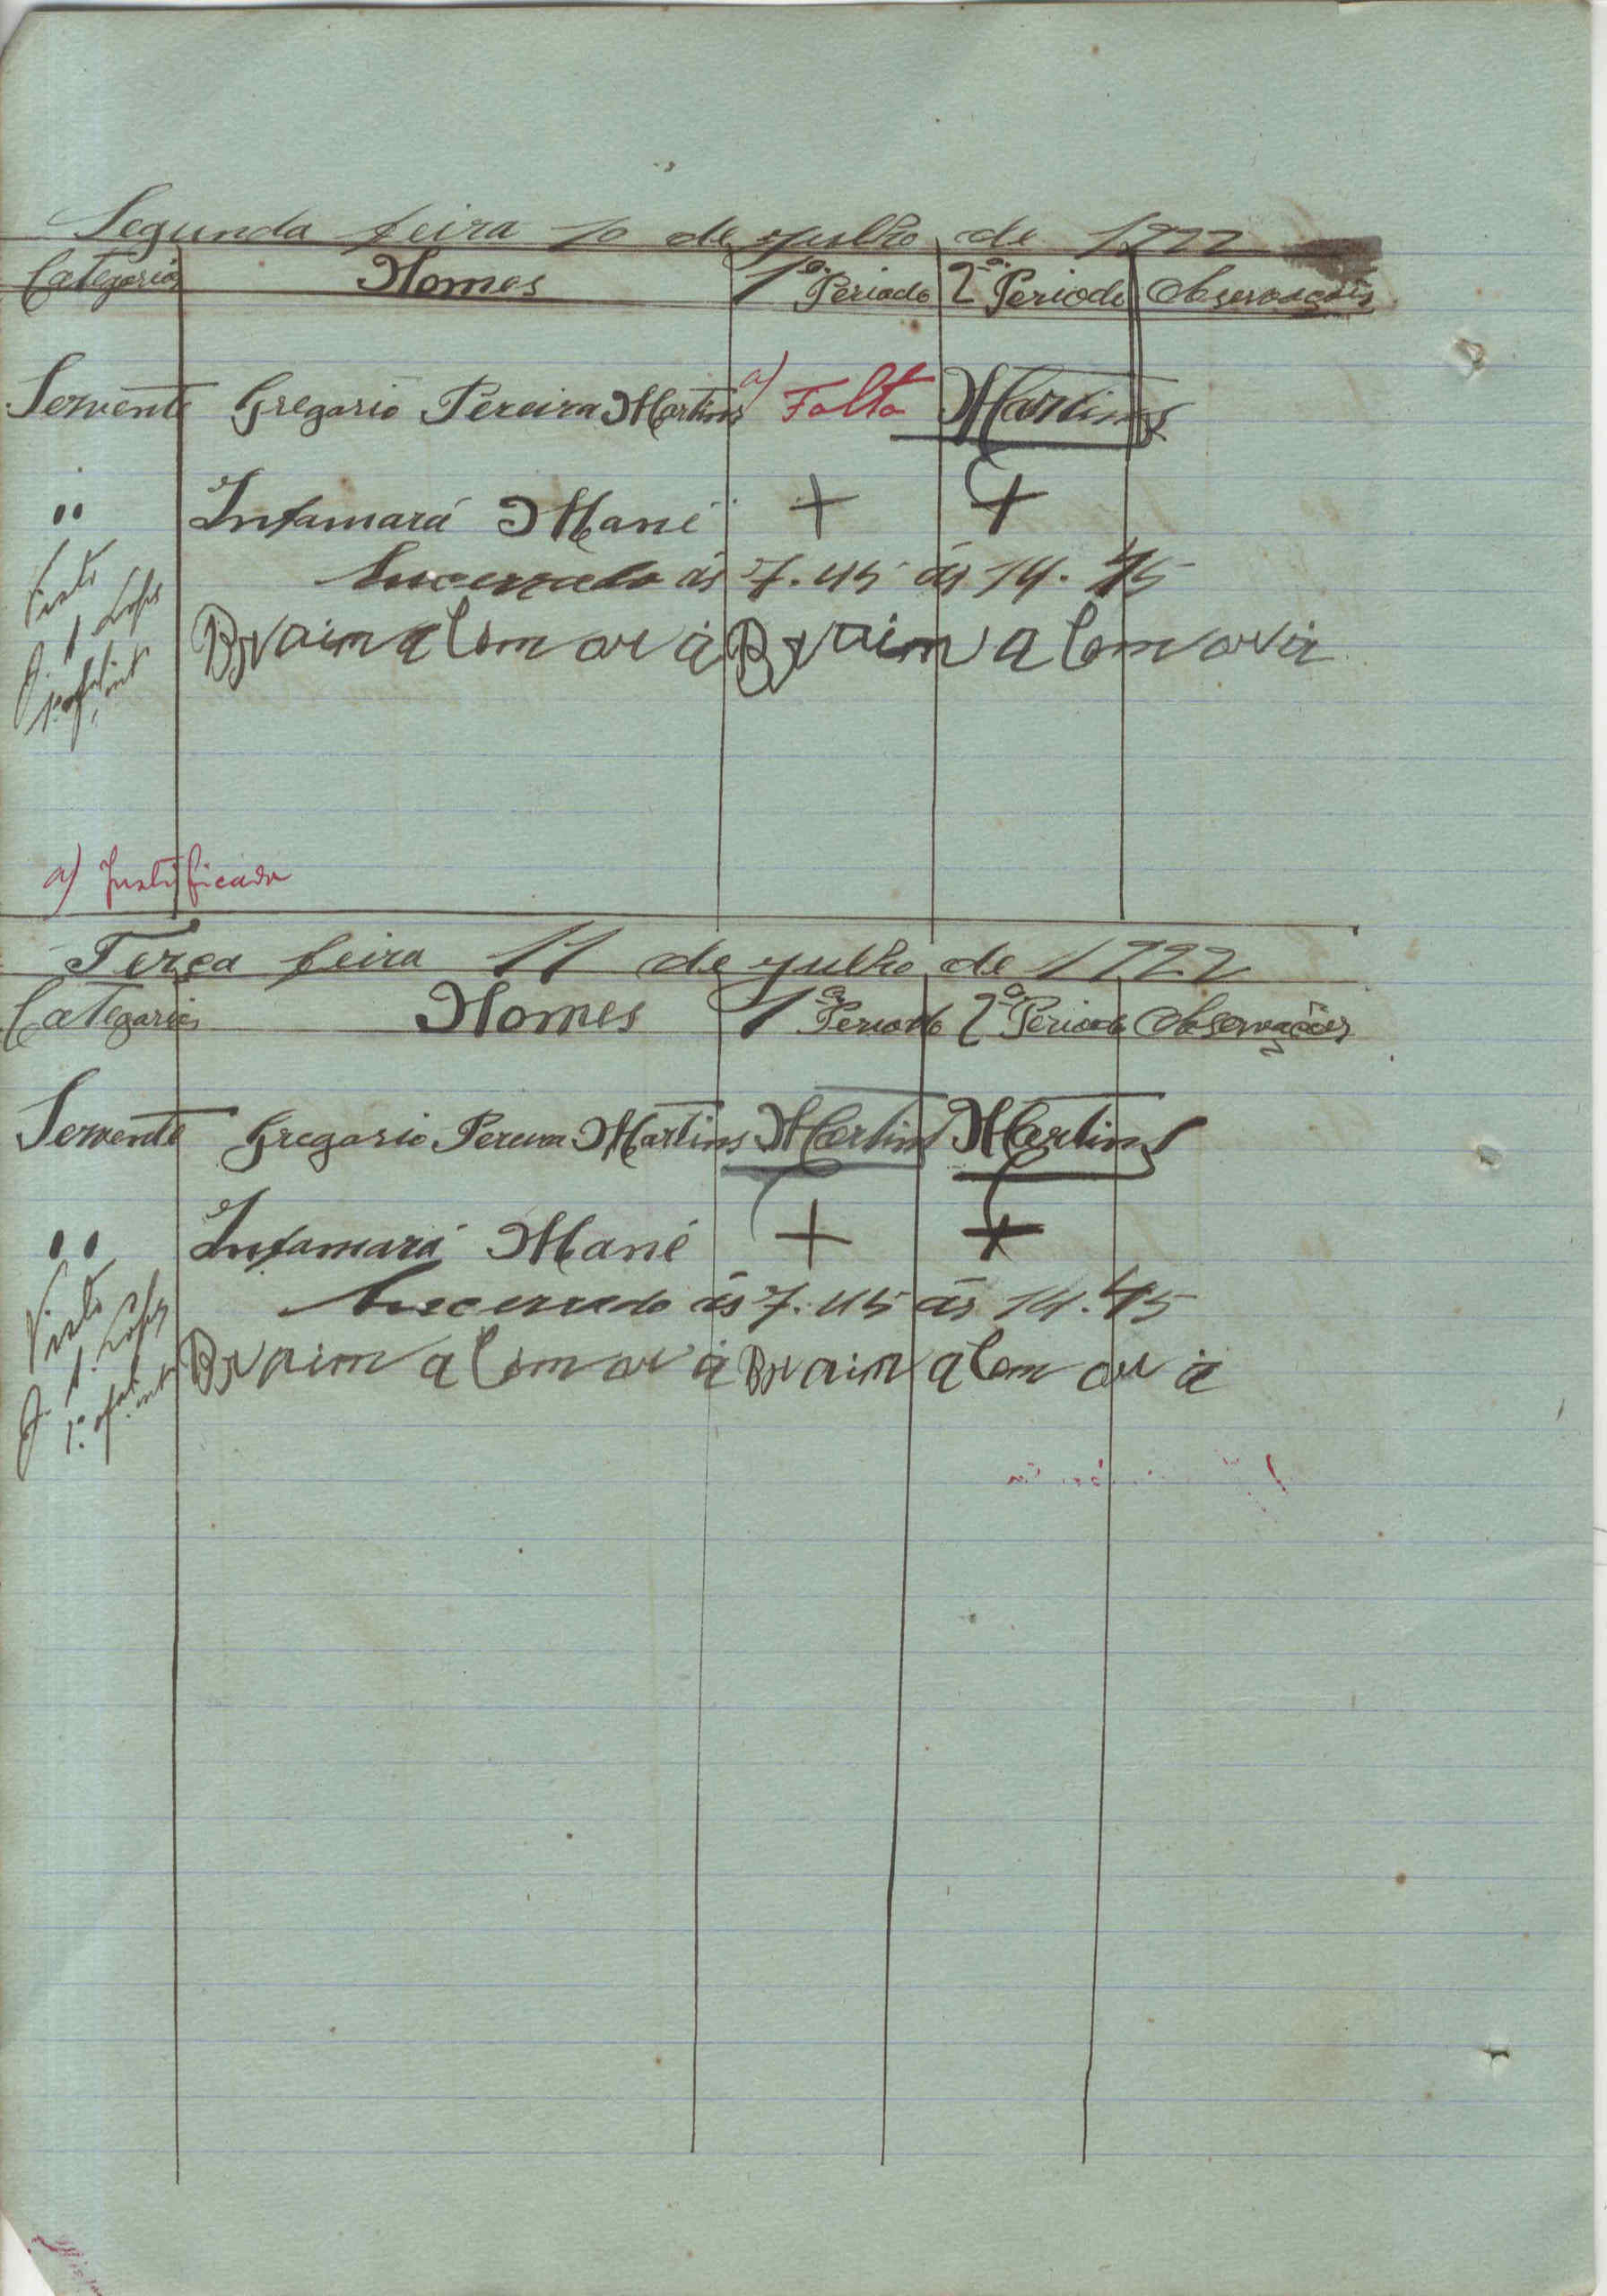 Segunda feira 10 de Julho de 1922
Categorias Nomes 1º Periodo 2º Periodo Observações
Servente Gregorio Pereira Martins a) Falta Martins
" Infamará Mané + +
Encerrado ás 7.45 ás 14.45
Visto
Braima Camará Braima Camará
J. A. Lopes
a) Justificada
Terça feira 11 de Julho de 1922
Categorias Nomes 1º Periodo 2º Periodo Observações
Servente Gregorio Pereira Martins Martins Martins
" Infamará Mané + +
Encerrado ás 7.45 ás 14.45
Visto
Braima Camará Braima Camará
J. A. Lopes